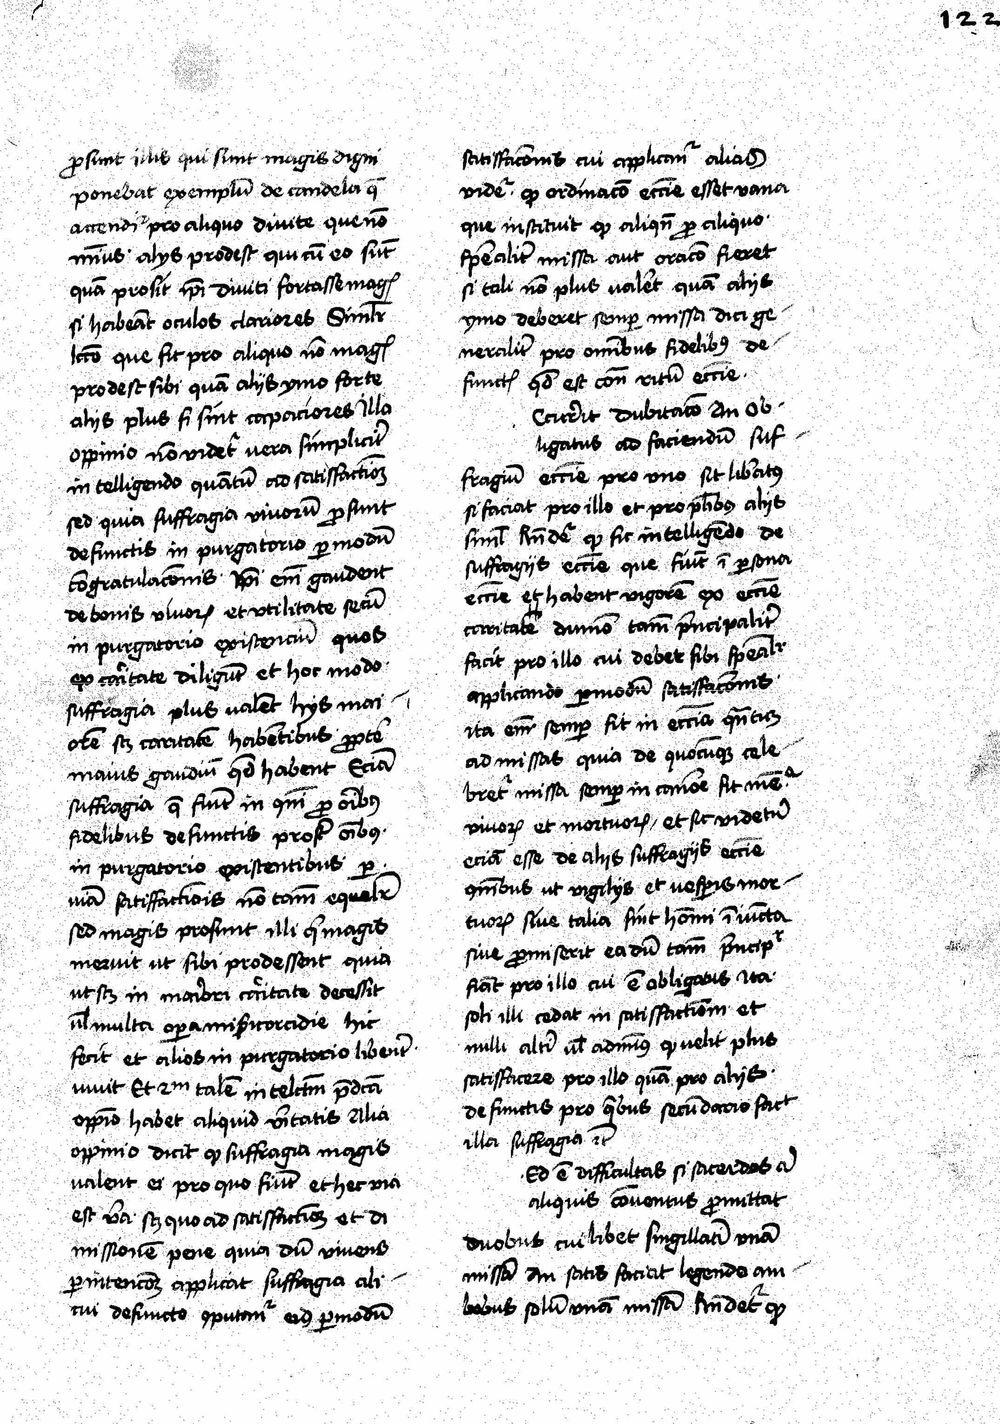 122
ꝓsunt illis qui sunt magis digni
ponebat exemplū de candela q̄
accendit̉ pro aliquo divite que nō
mīus alijs prodest qui cū eo sūt
quā prosit ip̄i diviti fortasse mag̉
si habeāt oculos clariores Similr̄
lcc̄o que fit pro aliquo nō mag̉
prodest sibi quā alijs ymo forte
alijs plus si sint capaciores Illa
oppinio nō videt̉ vera simplicit̄
intelligendo quātū ad satisfactiōꝫ
sed quia suffragia vivorū ꝓsunt
defunctis in purgatorio ꝑ modū
cōgratulac̄onis Ip̄i em̄ gaudent
de bonis vivoꝝ et utilitate secū
in purgatorio existenciū quos
ex caritate diligūt et hoc modo
suffragia plus valēt hys mai
orē scꝫ caritatē habētibus ꝓpt̄
maius gaudiū qd̄ habent Eciā
suffragia q̄ fiūt in q̄ni ꝓ oībꝰ
fidelibus defunctis prosūt oībꝰ
in purgatorio existentibus ꝑ
viā satisfactiōis nō tam̄ equalr̄
sed magis prosunt illi qͥ magis
meruit ut sibi prodessent quia
ut scꝫ in maiori caritate decessit
ul̄ multa oꝑa misīcorcidie hic
fecit et alios in purgatorio libent̄
iuvit Et 2m talē intelc̄tm p̄dc̄a
opp̄io habet aliquid v̄itatis Alia
oppinio dicit ꝙ suffragia magis
valent ei pro quo fiūt et hec via
est v̄a scꝫ quo ad satisfactiōꝫ et di
missionē pene quia dū vivens
pn̄itenciā applicat suffragia ali
cui defuncto ꝯputant̉ eidꝫ ꝑ modū
satisfac̄onis cui applicant̉ alias
videt̉ ꝙ ordinac̄o ecc̄ie esset vana
que instituit ꝙ aliqn̄ ꝓ aliquo
sp̄ealit̄ missa aut orac̄o fieret
si tali nō plus valēt quā alijs
ymo deberet semꝑ missa dici ge
neralit̄ pro omībus fidelibꝰ de
funct̉ qd̄ est con̄ ritū ecc̄ie
Ccurrit dubitac̄o An ob
ligatus ad faciendū suf
fragiū ecc̄ie pro uno sit libatꝰ
si faciat pro illo et pro pl̄ibꝰ alijs
siml̄ Rn̄det̉ ꝙ sic intelligēdo de
suffragijs ecc̄ie que fiūt ī ꝑsona
ecc̄ie et habent vigorē ex ecc̄ie
caritate dūmō tam̄ p̄ncipalit̄
facit pro illo cui debet sibi sp̄ealr̄
applicando ꝑ modū satisfac̄onis
ita em̄ semꝑ fit in ecc̄ia qn̄tuꝫ
ad missas quia de quocūqꝫ cele
bret̉ missa semꝑ in canōe fit mē
vivoꝝ et mortuoꝝ / et sic videtur̄
eciā esse de alijs suffragijs ecc̄ie
oībus ut vigilijs et vesꝑis mor
tuoꝝ sive talia sint hōni īiūcta
sive ꝓmiserit ea dū tam̄ p̄ncip̉
fiāt pro illo cui ē obligatus Ita
soli illi cedat in satisfactiōm et
nulli alt̄i ul̄ admīꝰ ꝙ velit plus
satisfacere pro illo quā pro alijs
defunctis pro qͥbus secūdario facit
illa suffragia ic̄
Ed ē difficultas si sacerdos a̅l
aliquis cōventus ꝓmittat
duobus cuilibet singillatī unā
missā An satis faciat legendo am
bobus solū unā missā Rn̄det̉ ꝙ